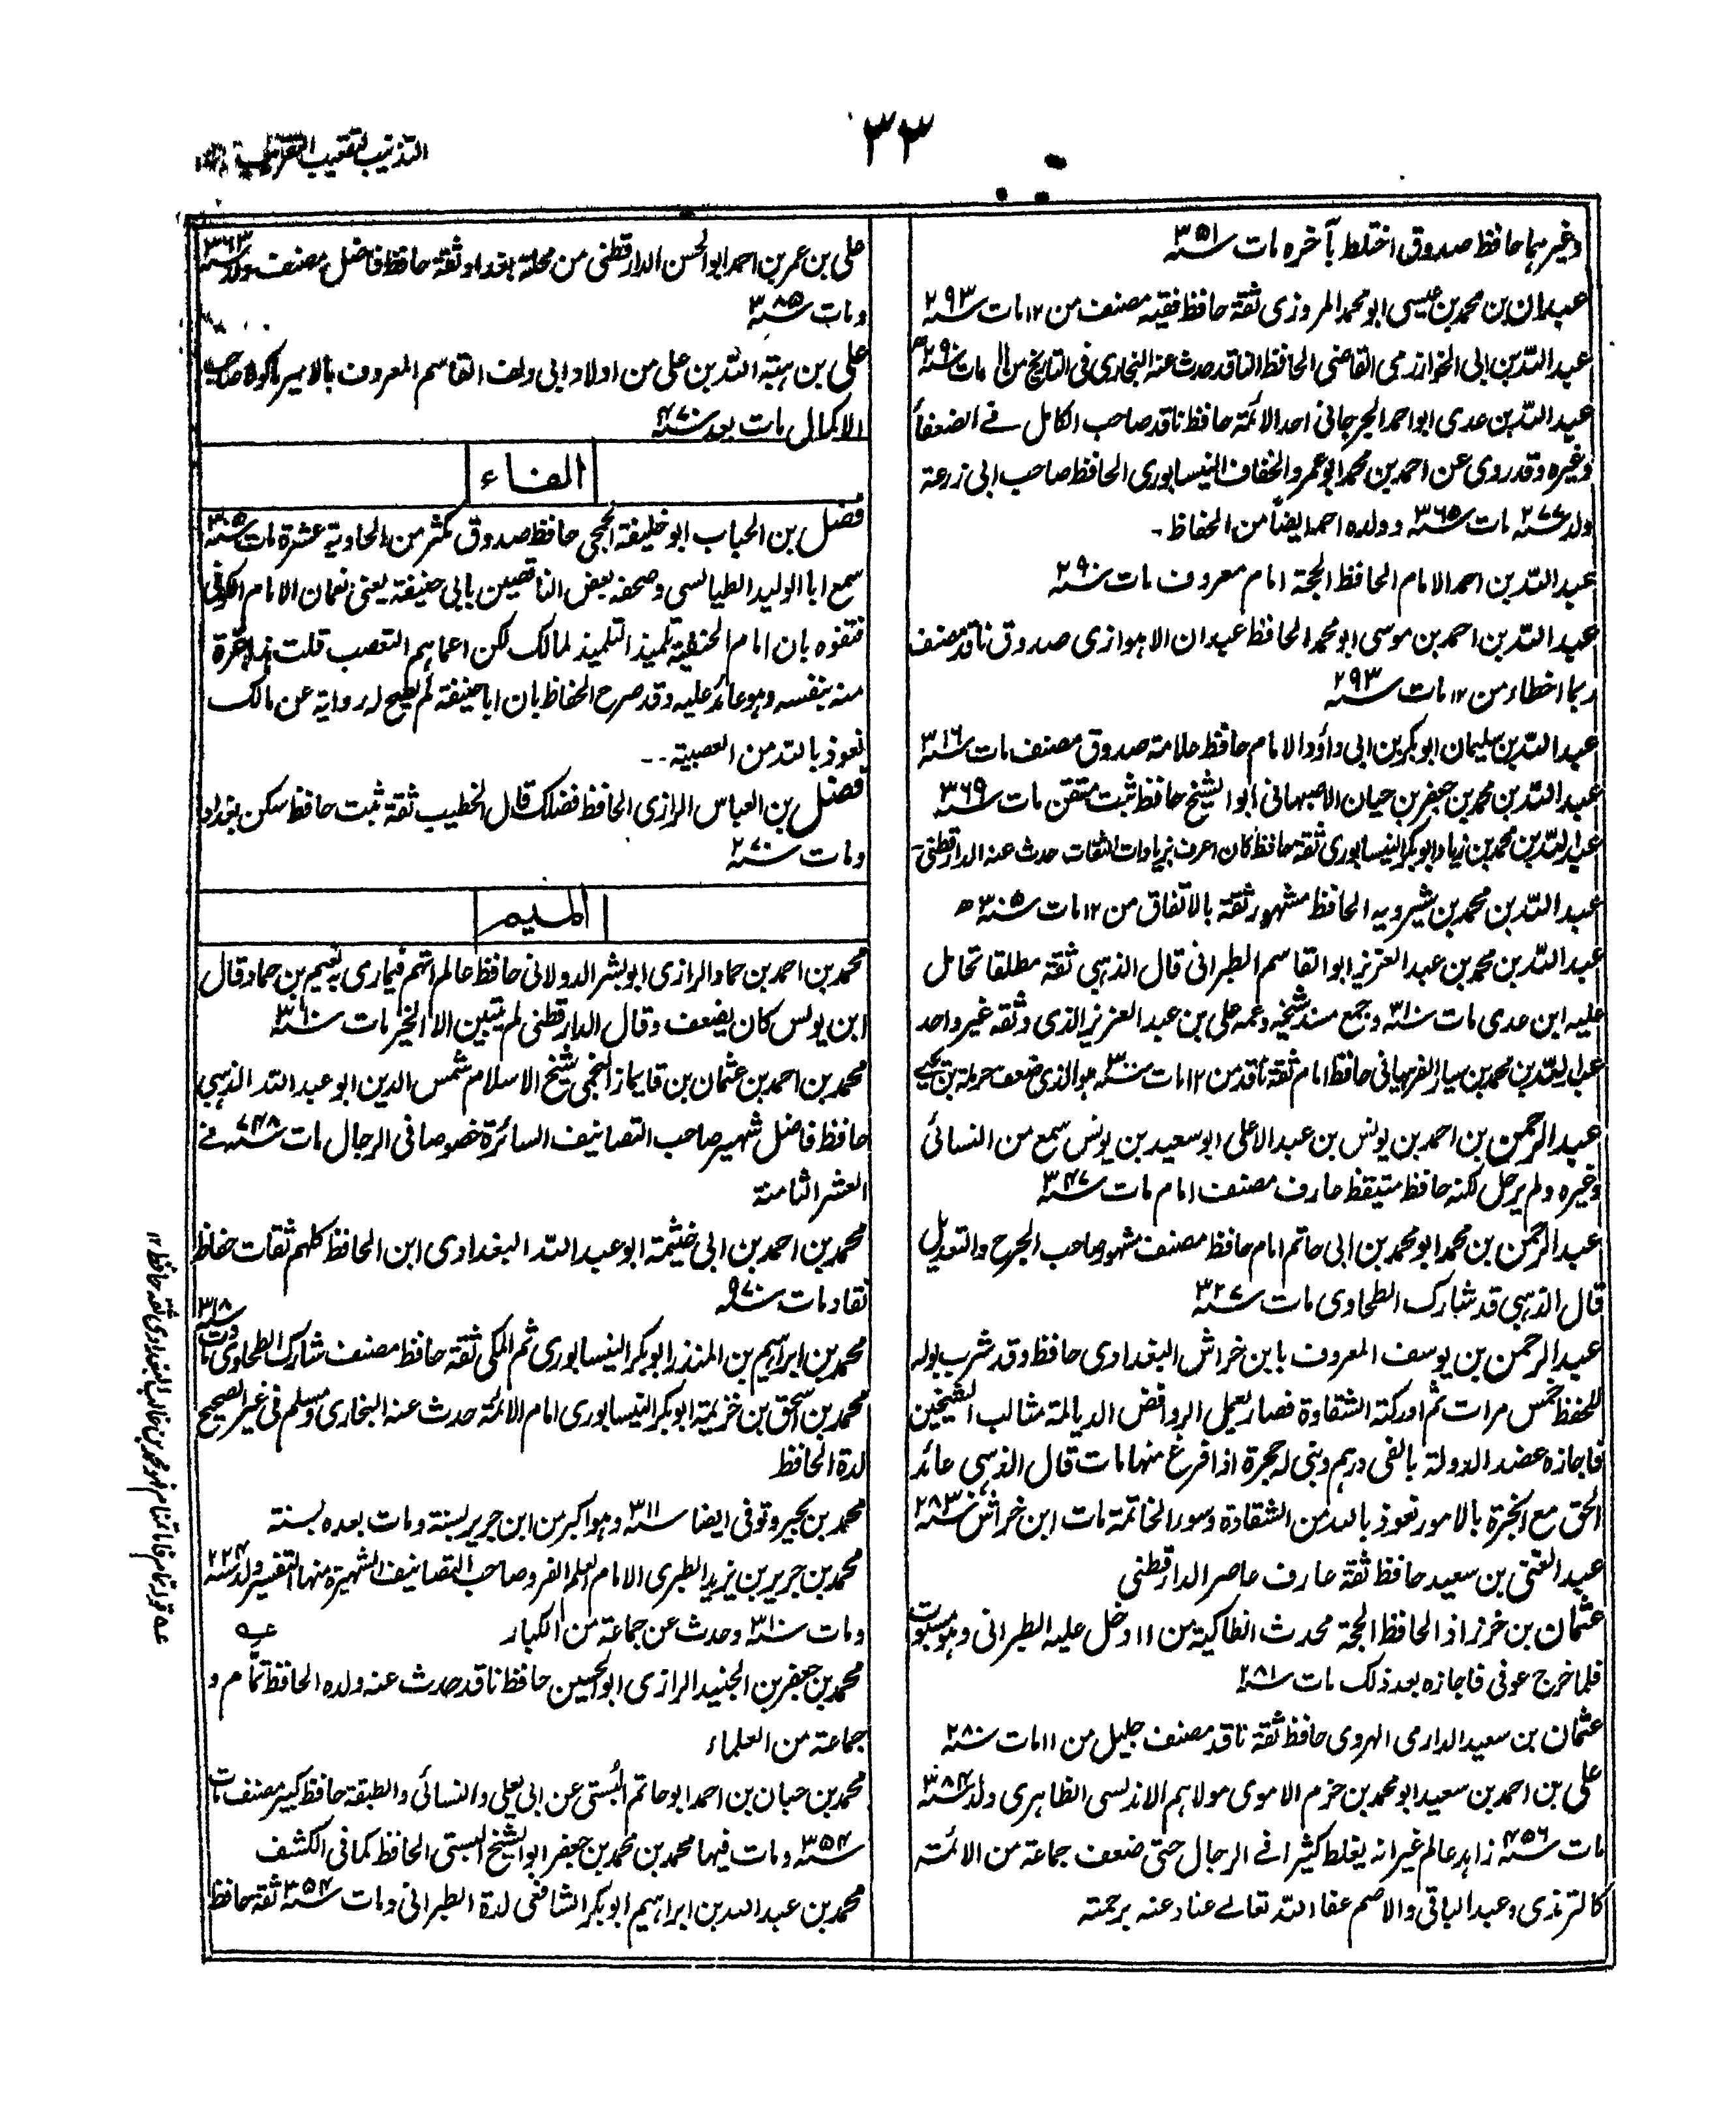 ٣٣
التذنيب لتعقيب التقريب
وغيرهما حافظ صدوق اختلط بآخره مات سنة ٣٥١
عبدان بن محمد بن عيسى ابو محمد المروزى ثقة حافظ فقيه مصنف من ١٢ مات سنة ٢٩٣
عبد الله بن ابى الخوارزمى القاضى الحافظ الناقد حدث عنه البخارى فى التاريخ من ١١ مات سنة
عبد الله بن عدى ابو احمد الجرجانى احد الائمة حافظ ناقد صاحب الكامل فے الضعفاء
وغيره وقد روى عن احمد بن محمد ابو عمرو الخفاف النيسابورى الحافظ صاحب ابى زرعة
ولد سنة ٢٧٧ مات سنة ٣٦٥ وولده احمد ايضاً من الحفاظ -
عبد الله بن احمد الامام الحافظ الحجة امام معروف مات سنة ٢٩٠
عبد الله بن احمد بن موسى ابو محمد الحافظ عبدان الاهوازى صدوق ناقد مصنف
ربما اخطاء من ١٢ مات سنة ٢٩٣
عبد الله بن سليمان ابو بكر بن ابى داؤد الامام حافظ علامة صدوق مصنف مات سنة ٣١٦
عبد الله بن محمد بن جعفر بن حيان الاصبهانى ابو الشيخ حافظ ثبت متقن مات سنة ٣٦٩
عبد الله بن محمد بن زياد ابو بكر النيسابورى ثقة حافظ كان اعرف بزيادات الثقات حدث عنه الدارقطنى
عبد الله بن محمد بن شيرويه الحافظ مشهور ثقة بالاتفاق من ١٢ مات سنة ٣٠٥ ھ
عبد الله بن محمد بن عبد العزيز ابو القاسم الطبرانى قال الذهبى ثقة مطلقا تحامل
عليه ابن عدى مات سنة ٣١٠ وجمع مسند شيخه وعمه على بن عبد العزيز الذى وثقه غير واحد
عبد الله بن محمد بن سيار الفرهيانى حافظ امام ثقة ناقد من ١٢ مات سنة ٣٠٠ هو الذى ضعف حرملة بن يحيے
عبد الرحمن بن احمد بن يونس بن عبد الاعلى ابو سعيد بن يونس سمع من النسائى
وغيره ولم يرحل لكنه حافظ متيقظ عارف مصنف امام مات سنة ٣٤٧
عبد الرحمن بن محمد ابو محمد بن ابى حاتم امام حافظ مصنف مشهور صاحب الجرح والتعديل
قال الذهبى قد شارك الطحاوى مات سنة ٣٢٧
عبد الرحمن بن يوسف المعروف بابن خراش البغدادى حافظ وقد شرب بوله
للحفظ خمس مرات ثم ادركته الشقاوة فصار يعمل الروافض الديالمة مثالب الشيخين
فاجازه عضد الدولة بالفى درهم وبنى له حجرة اذا فرغ منها مات قال الذهبى عائد
الحق مع الخبرة بالامور نعوذ بالله من الشقاوة وسوء الخاتمة مات ابن خراش سنة ٢٨٣
عبد الغنى بن سعيد حافظ ثقة عارف عاصر الدارقطنى
عثمان بن خرزاذ الحافظ الحجة محدث انطاكية من ١١ دخل عليه الطبرانى وهو مسبوت
فلما خرج عوفى فاجازه بعد ذلك مات سنة ٢٨١
عثمان بن سعيد الدارمى الهروى حافظ ثقة ناقد مصنف جليل من ١١ مات سنة ٢٨٠
على بن احمد بن سعيد ابو محمد بن حزم الاموى مولاهم الاندلسى الظاهرى ولد سنة ٣٨٤
مات سنة ٤٥٦ زاهد عالم غير انه يغلط كثيرا فے الرجال حتى ضعف جماعة من الائمة
كالترمذى وعبد الباقى والاصم عفا الله تعالے عنا وعنه برحمته
على بن عمر بن احمد ابو الحسن الدارقطنى من محلة بغداد ثقة حافظ فاضل مصنف ولد سنة ٣٦٣
ومات سنة ٣٨٥
على بن هبة الله بن على من اولاد ابى دلف القاسم المعروف بالامير ماكولا صاحب
الاكمال مات بعد سنة ٤٧٠
الفاء
فضل بن الحباب ابو خليفة الجمحى حافظ صدوق مكثر من الحاوية عشرة مات سنة ٣٠٥
سمع ابا الوليد الطيالسى وصحفه بعض الناقصين بابى حنيفة يعنى نعمان الامام الكوفى
فتفوه بان امام الحنفية تلميذ التلميذ لمالك لكن اعماهم التعصب قلت هذا غرة
منه بنفسه وهو عائد عليه وقد صرح الحفاظ بان ابا حنيفة لم يصح له رواية عن مالك
نعوذ بالله من العصبية --
فضل بن العباس الرازى الحافظ فضلك قال الخطيب ثقة ثبت حافظ سكن بغداد
ومات سنة ٢٧٠
الميم
محمد بن احمد بن حماد الرازى ابو بشر الدولابى حافظ عالم اتهم فيما رمى به نعيم بن حماد قال
ابن يونس كان يضعف وقال الدارقطنى لم يتبين الا الخير مات سنة ٣١٠
محمد بن احمد بن عثمان بن قايماز النجمى شيخ الاسلام شمس الدين ابو عبد الله الذهبى
حافظ فاضل شهير صاحب التصانيف السائرة خصوصا فى الرجال مات سنة ٧٤٨ فے
العشر الثامنة
محمد بن احمد بن ابى خثيمة ابو عبد الله البغدادى ابن الحافظ كلهم ثقات حفاظ
نقاد مات سنة ٩٧٠
محمد بن ابراهيم بن المنذر ابو بكر النيسابورى ثم المكى ثقة حافظ مصنف شارك الطحاوى مات سنة ٣١٨
محمد بن اسحق بن خزيمة ابو بكر النيسابورى امام الائمة حدث عنه البخارى ومسلم فى غير الصحيح
لدة الحافظ
محمد بن بجير وتوفى ايضا سنة ٣١١ وهو اكبر من ابن جرير بسنة ومات بعده بسنة
محمد بن جرير بن يزيد الطبرى الامام العلم الفرد صاحب التصانيف الشهيرة منها التفسير ولد سنة ٢٢٤
ومات سنة ٣١٠ وحدث عن جماعة من الكبار
محمد بن جعفر بن الجنيد الرازى ابو الحسين حافظ ناقد حدث عنه ولده الحافظ تمام و
جماعة من العلماء
محمد بن حبان بن احمد ابو حاتم البستى عن ابى يعلى والنسائى والطبقة حافظ كبير مصنف مات
سنة ٣٥٤ ومات فيها محمد بن محمد بن جعفر ابو الشيخ البستى الحافظ كما فى الكشف
محمد بن عبد الله بن ابراهيم ابو بكر الشافعى لدة الطبرانى ومات سنة ٣٥٤ ثقة حافظ
عه قوله تمام فاما تمتام فهو محمد بن غالب البغدادى ثقة حافظ ١٢